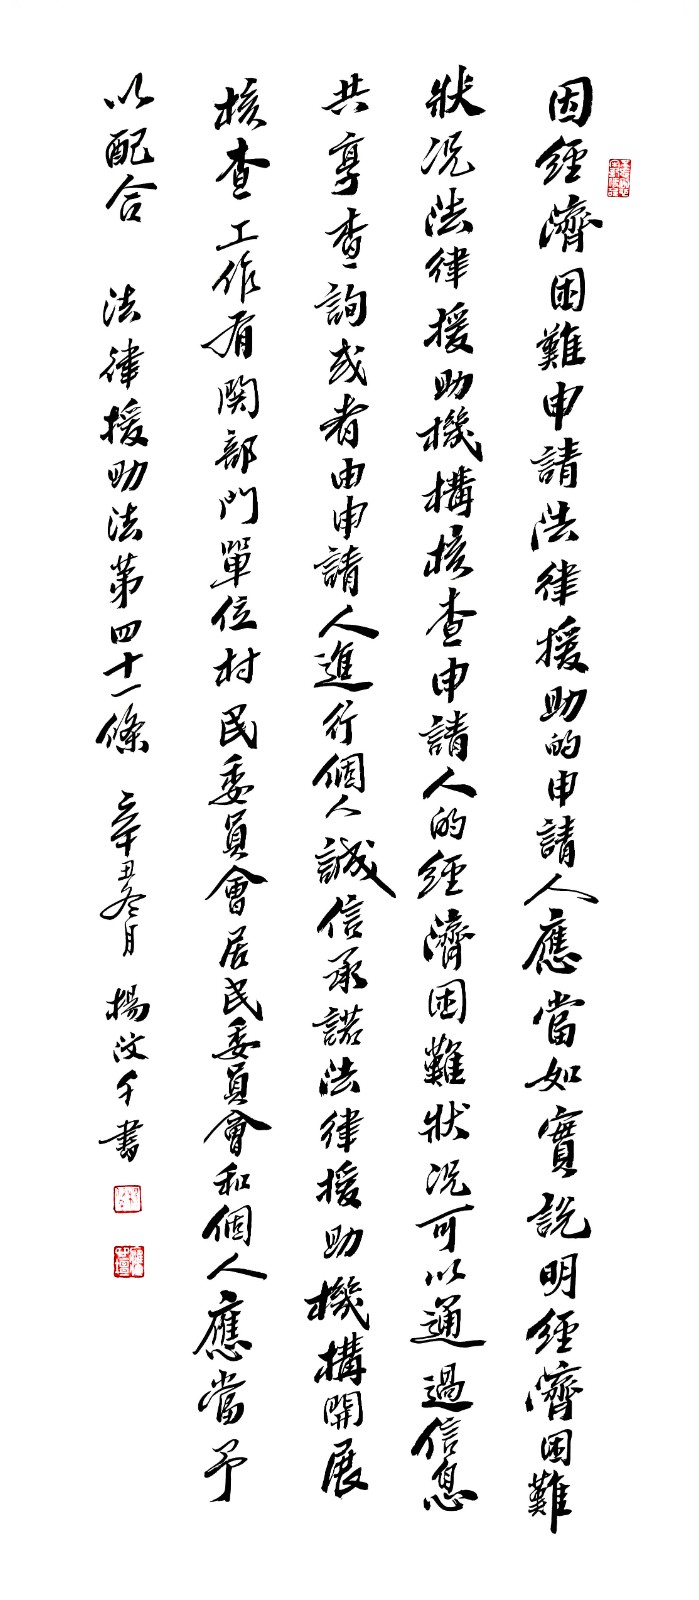 因經濟困難申請法律援助的申請人應當如實說明經濟困難
狀况法律援助機構核查申請人的經濟困難狀况可以通過信息
共享查詢或者由申請人進行個人誠信承諾法律援助機構開展
核查工作有関部門單位村民委員會居民委員會和個人應當予
以配合 法律援助法第四十一條 辛丑冬月 楊汶千書